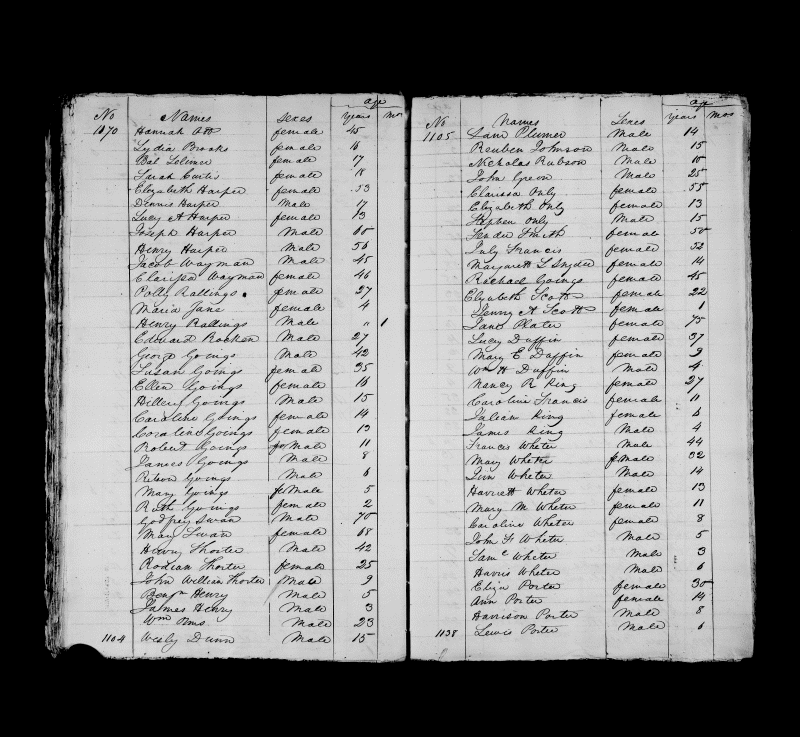 age
No Names Sexes years mos
1070 Hannah Ott female 45
Lydia Brooks female 16
female 17
Sarah Curtis female 18
Elizabeth Harper female 53
Dennis Harper Male 17
Lucy A Harper female 13
Joseph Harper Male 60
Henry Harper Male 56
Jacob Wayman Male 45
Clarissa Wayman female 46
Polly Rallings female 27
Maria Jane female 4
Henry Rallings Male " 1
Edward Male 27
George Goings Male 42
Susan Goings female 35
Ellen Goings female 16
Hillery Goings Male 15
Caroline Goings female 14
Coraline Goings female 13
Robert Goings Male 11
James Goings Male 8
Goings Male 6
Mary Goings feMale 5
Ruth Goings female 2
Godfrey Swan Male 75
Mary Swan female 68
Henry Thorter Male 42
Rodian Thorter female 25
John William Thorter Male 9
Benjn Henry Male 5
James Henry Male 3
Wm Male 23
1104 Wesly Dunn Male 15
age
No Names Sexes years mos
1105 Sam Plumer Male 14
Reuben Johnson Male 15
Nicholas Rubson Male 10
John Green Male 25
Clarissa Only female 55
Elizabeth Only female 13
Stephen Only Male 15
Smith female 50
July Francis female 32
Margarett L Snyder female 14
Rachael Goings female 45
Elizabeth Scott female 22
Jenny A Scott female 1
Jane Plater female 75
Lucy Duffin female 37
Mary E Duffin female 9
Wm H Duffin Male 4
Nancy R King female 27
Caroline Francis female 11
Julian King female 6
James King Male 4
Francis Wheter Male 44
Mary Wheter feMale 32
Wheter Male 14
Harriett Wheter female 13
Mary M Wheter female 11
Caroline Wheter female 8
John H Wheter Male 5
Saml Wheter Male 3
Harris Wheter Male 6
Eliza Porter female 30
Ann Porter female 14
Harrison Porter Male 8
1138 Lewis Porter Male 6